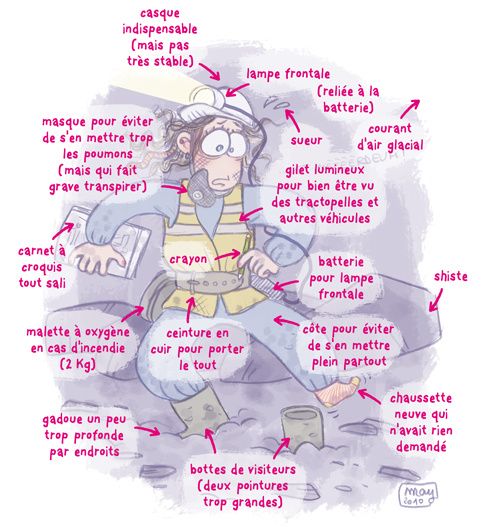 casque
indispensable
(mais pas
très stable)
lampe frontale
(reliée à la
batterie)
masque pour éviter
de s'en mettre trop
les poumons
(mais qui fait
grave transpirer)
sueur
courant
d'air glacial
gilet lumineux
pour bien être vu
des tractopelles et
autres véhicules
carnet à
croquis
tout sali
crayon
batterie
pour lampe
frontale
shiste
malette à oxygène
en cas d'incendie
(2 Kg)
ceinture en
cuir pour porter
le tout
côte pour éviter
de s'en mettre
plein partout
chaussette
neuve qui
n'avait rien
demandé
gadoue un peu
trop profonde
par endroits
bottes de visiteurs
(deux pointures
trop grandes)
may
2010